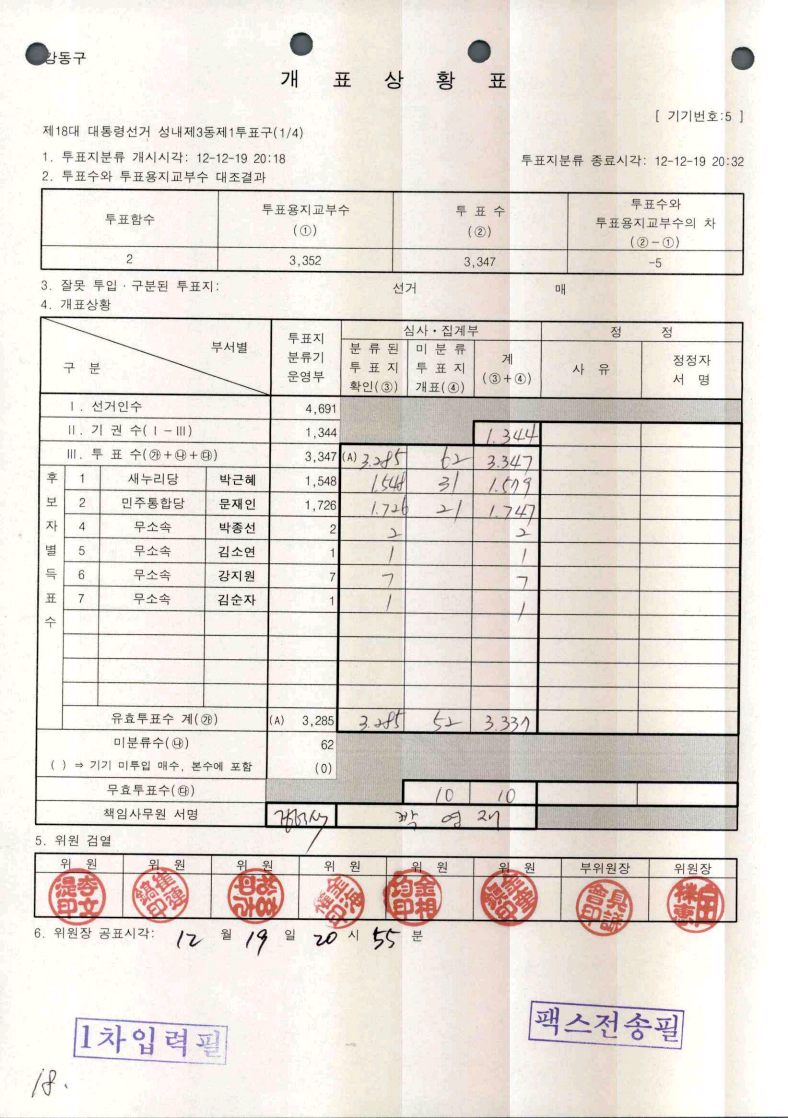 강동구
개 표 상 황 표
[ 기기번호:5 ]
제18대 대통령선거 성내제3동제1투표구(1/4)
1. 투표지분류 개시시각: 12-12-19 20:18 투표지분류 종료시각: 12-12-19 20:32
2. 투표수와 투표용지교부수 대조결과
투표함수 투표용지교부수 (①) 투 표 수 (②) 투표수와 투표용지교부수의 차 (②-①)
2 3,352 3,347 -5
3. 잘못 투입 · 구분된 투표지: 선거 매
4. 개표상황
구 분 부서별 투표지 분류기 운영부 심사·집계부 정 정
분 류 된 투 표 지 확인(③) 미 분 류 투 표 지 개표(④) 계 (③+④) 사 유 정정자 서 명
Ⅰ. 선거인수 4,691
Ⅱ. 기 권 수(Ⅰ-Ⅲ) 1,344 1.344
Ⅲ. 투 표 수(㉮+㉯+㉰) 3,347 (A) 3.285 62 3.347
후보자별득표수
1 새누리당 박근혜 1,548 1.548 31 1.579
2 민주통합당 문재인 1,726 1.726 21 1.747
4 무소속 박종선 2 2 2
5 무소속 김소연 1 1 1
6 무소속 강지원 7 7 7
7 무소속 김순자 1 1 1
유효투표수 계(㉮) (A) 3,285 3.285 52 3.337
미분류수(㉯) 62
( ) ⇒ 기기 미투입 매수, 본수에 포함 (0)
무효투표수(㉰) 10 10
책임사무원 서명 박 영 재
5. 위원 검열
위 원 위 원 위 원 위 원 위 원 위 원 부위원장 위원장
6. 위원장 공표시각: 12 월 19 일 20 시 55 분
1차입력필
팩스전송필
18.